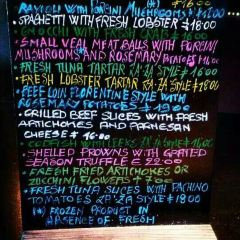 RAVIOLI WITH PORCINI MUSHROOMS € 16:00
SPAGHETTI WITH FRESH LOBSTER € 18:00
WITH FRESH CRABS € 16:00
SMALL VEAL MEAT BALLS WITH PORCINI
MUSHROOMS AND ROSEMARY POTATOES
FRESH TUNA TARTAR ZA-ZA STYLE € 16:00
FRESH LOBSTER TARTAR ZA-ZA STYLE € 18:00
BEEF LOIN FLORENTINE STYLE WITH
ROSEMARY POTATOES € 19:00
GRILLED BEEF SLICES WITH FRESH
ARTICHOKES AND PARMESAN
CHEESE € 16:00
CODFISH WITH LEEKS ZA-ZA STYLE € 16:00
SHELLED PRAWNS WITH GRATED
SEASON TRUFFLE € 22:00
FRESH FRIED ARTICHOKES OR
ZUCCHINI FLOWERS € 7:00
FRESH TUNA SLICES WITH PACHINO
TOMATOES ZA'ZA STYLE € 18:00
(*) FROZEN PRODUCT IN
ABSENCE OF FRESH